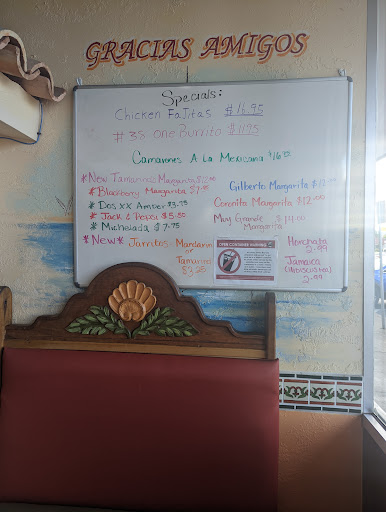 GRACIAS AMIGOS
Specials:
Chicken Fajitas $16.95
#38 One Burrito $11.95
Camarones A La Mexicana $16.95
*New Tamarindo Margarita
*Blackberry Margarita
*Dos XX Amber $3.75
*Jack & Pepsi $5.50
*Michelada $7.75
*New* Jarritos: Mandarin
or
Tamarind
$3.50
Gilberto Margarita
Coronita Margarita $12.00
Muy Grande $14.00
Margarita
OPEN CONTAINER WARNING
Horchata
2.99
Jamaica
2.99